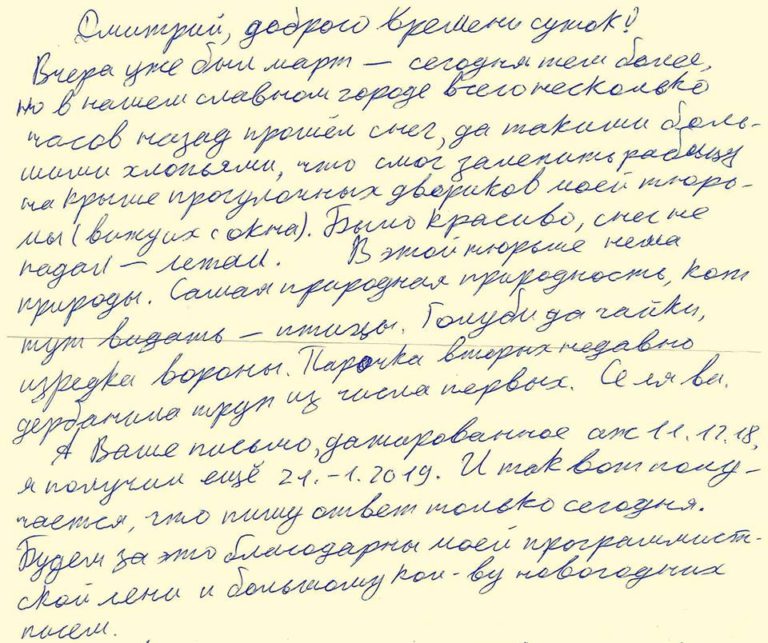 Дмитрий, доброго времени суток!
Вчера уже был март — сегодня тем более,
но в нашем славном городе всего несколько
часов назад прошёл снег, да такими боль-
шими хлопьями, что смог залепить рабицу
на крыше прогулочных двориков моей тюрь-
мы (вижу их с окна). Было красиво, снег не
падал — летал. В этой тюрьме нема
природы. Самая природная природность, кот
тут видать — птицы. Голуби да чайки,
изредка вороны. Парочка вторых недавно
дербанила труп из числа первых. Се ля ви.
А Ваше письмо, датированное аж 11.12.18,
я получил ещё 21.-1.2019. И так вот полу-
чается, что пишу ответ только сегодня.
Будем за это благодарны моей программист-
ской лени и большому кол-ву новогодних
писем.